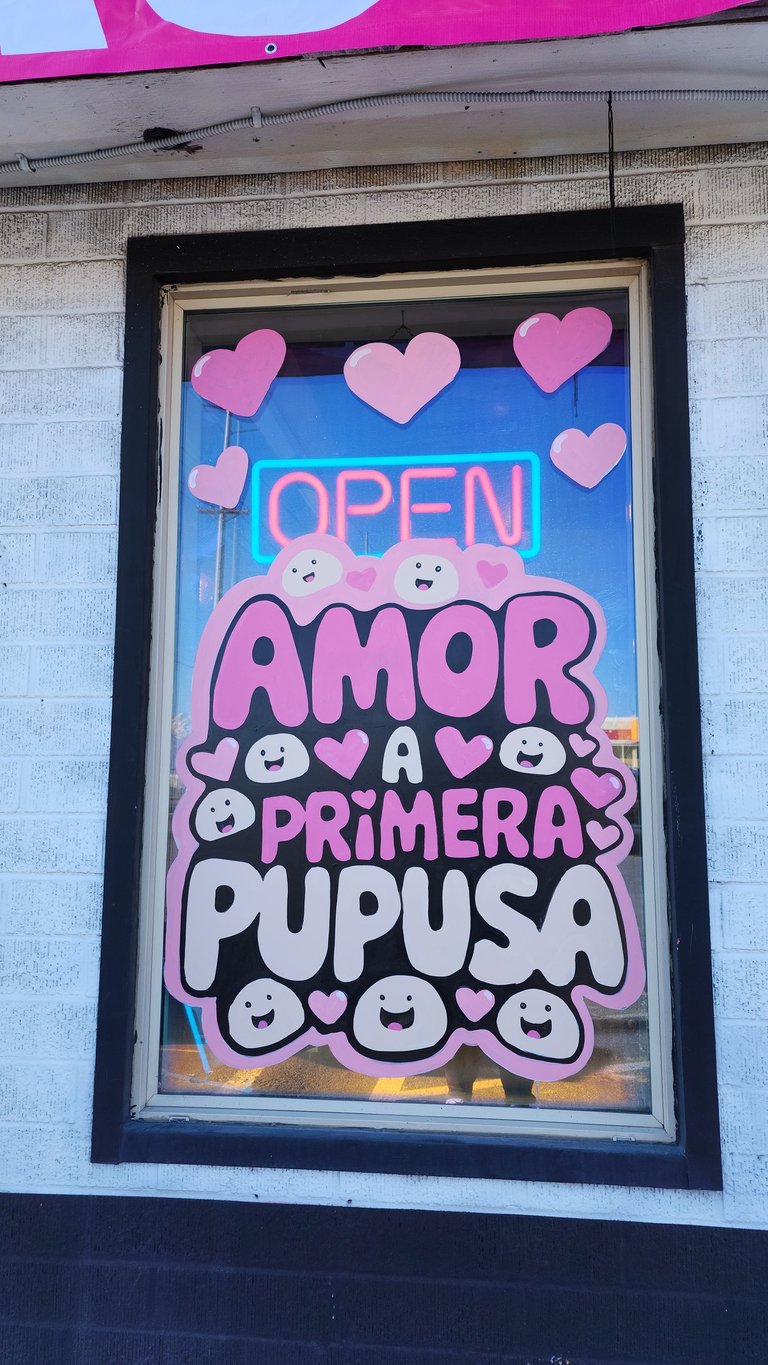 OPEN
AMOR
A
PRIMERA
PUPUSA